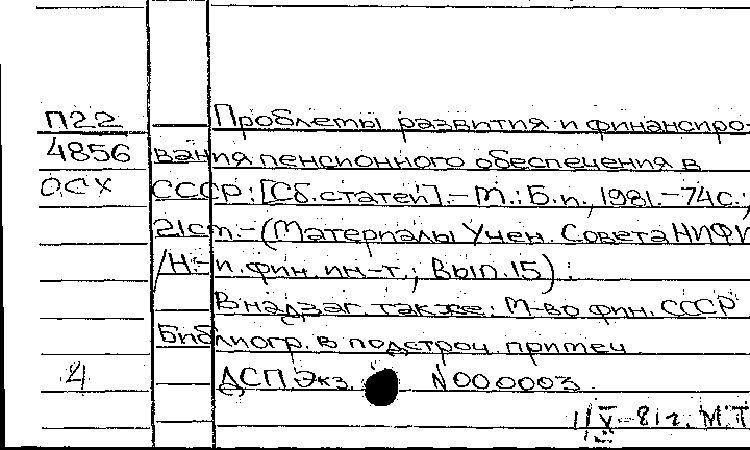 П22 Проблемы развития и финансиро-
4856 вания пенсионного обеспечения в
ОСХ СССР: [Сб. статей]. - М.: Б.и., 1981. - 74с.;
21см. - (Материалы Учен. Совета НИФИ
/Н.-и. фин. ин-т.; Вып. 15).
В надзаг. также: М-во фин. СССР
Библиогр. в подстроч. примеч
4 ДСП Экз. N000003.
11/V-81г. М.Т